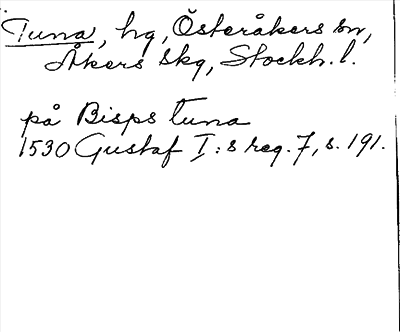 Tuna, hg, Österåkers sn,
Åkers skg, Stockh. l.
på Bisps tuna
1530 Gustaf I:s reg. 7, s. 191.